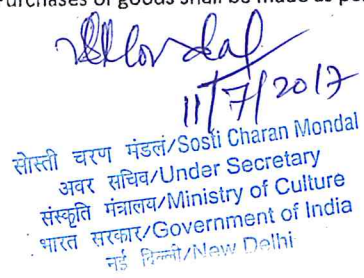 Purchases of goods shall be made as pe
11/7/2017
सोस्ती चरण मंडल/Sosti Charan Mondal
अवर सचिव/Under Secretary
संस्कृति मंत्रालय/Ministry of Culture
भारत सरकार/Government of India
नई दिल्ली/New Delhi